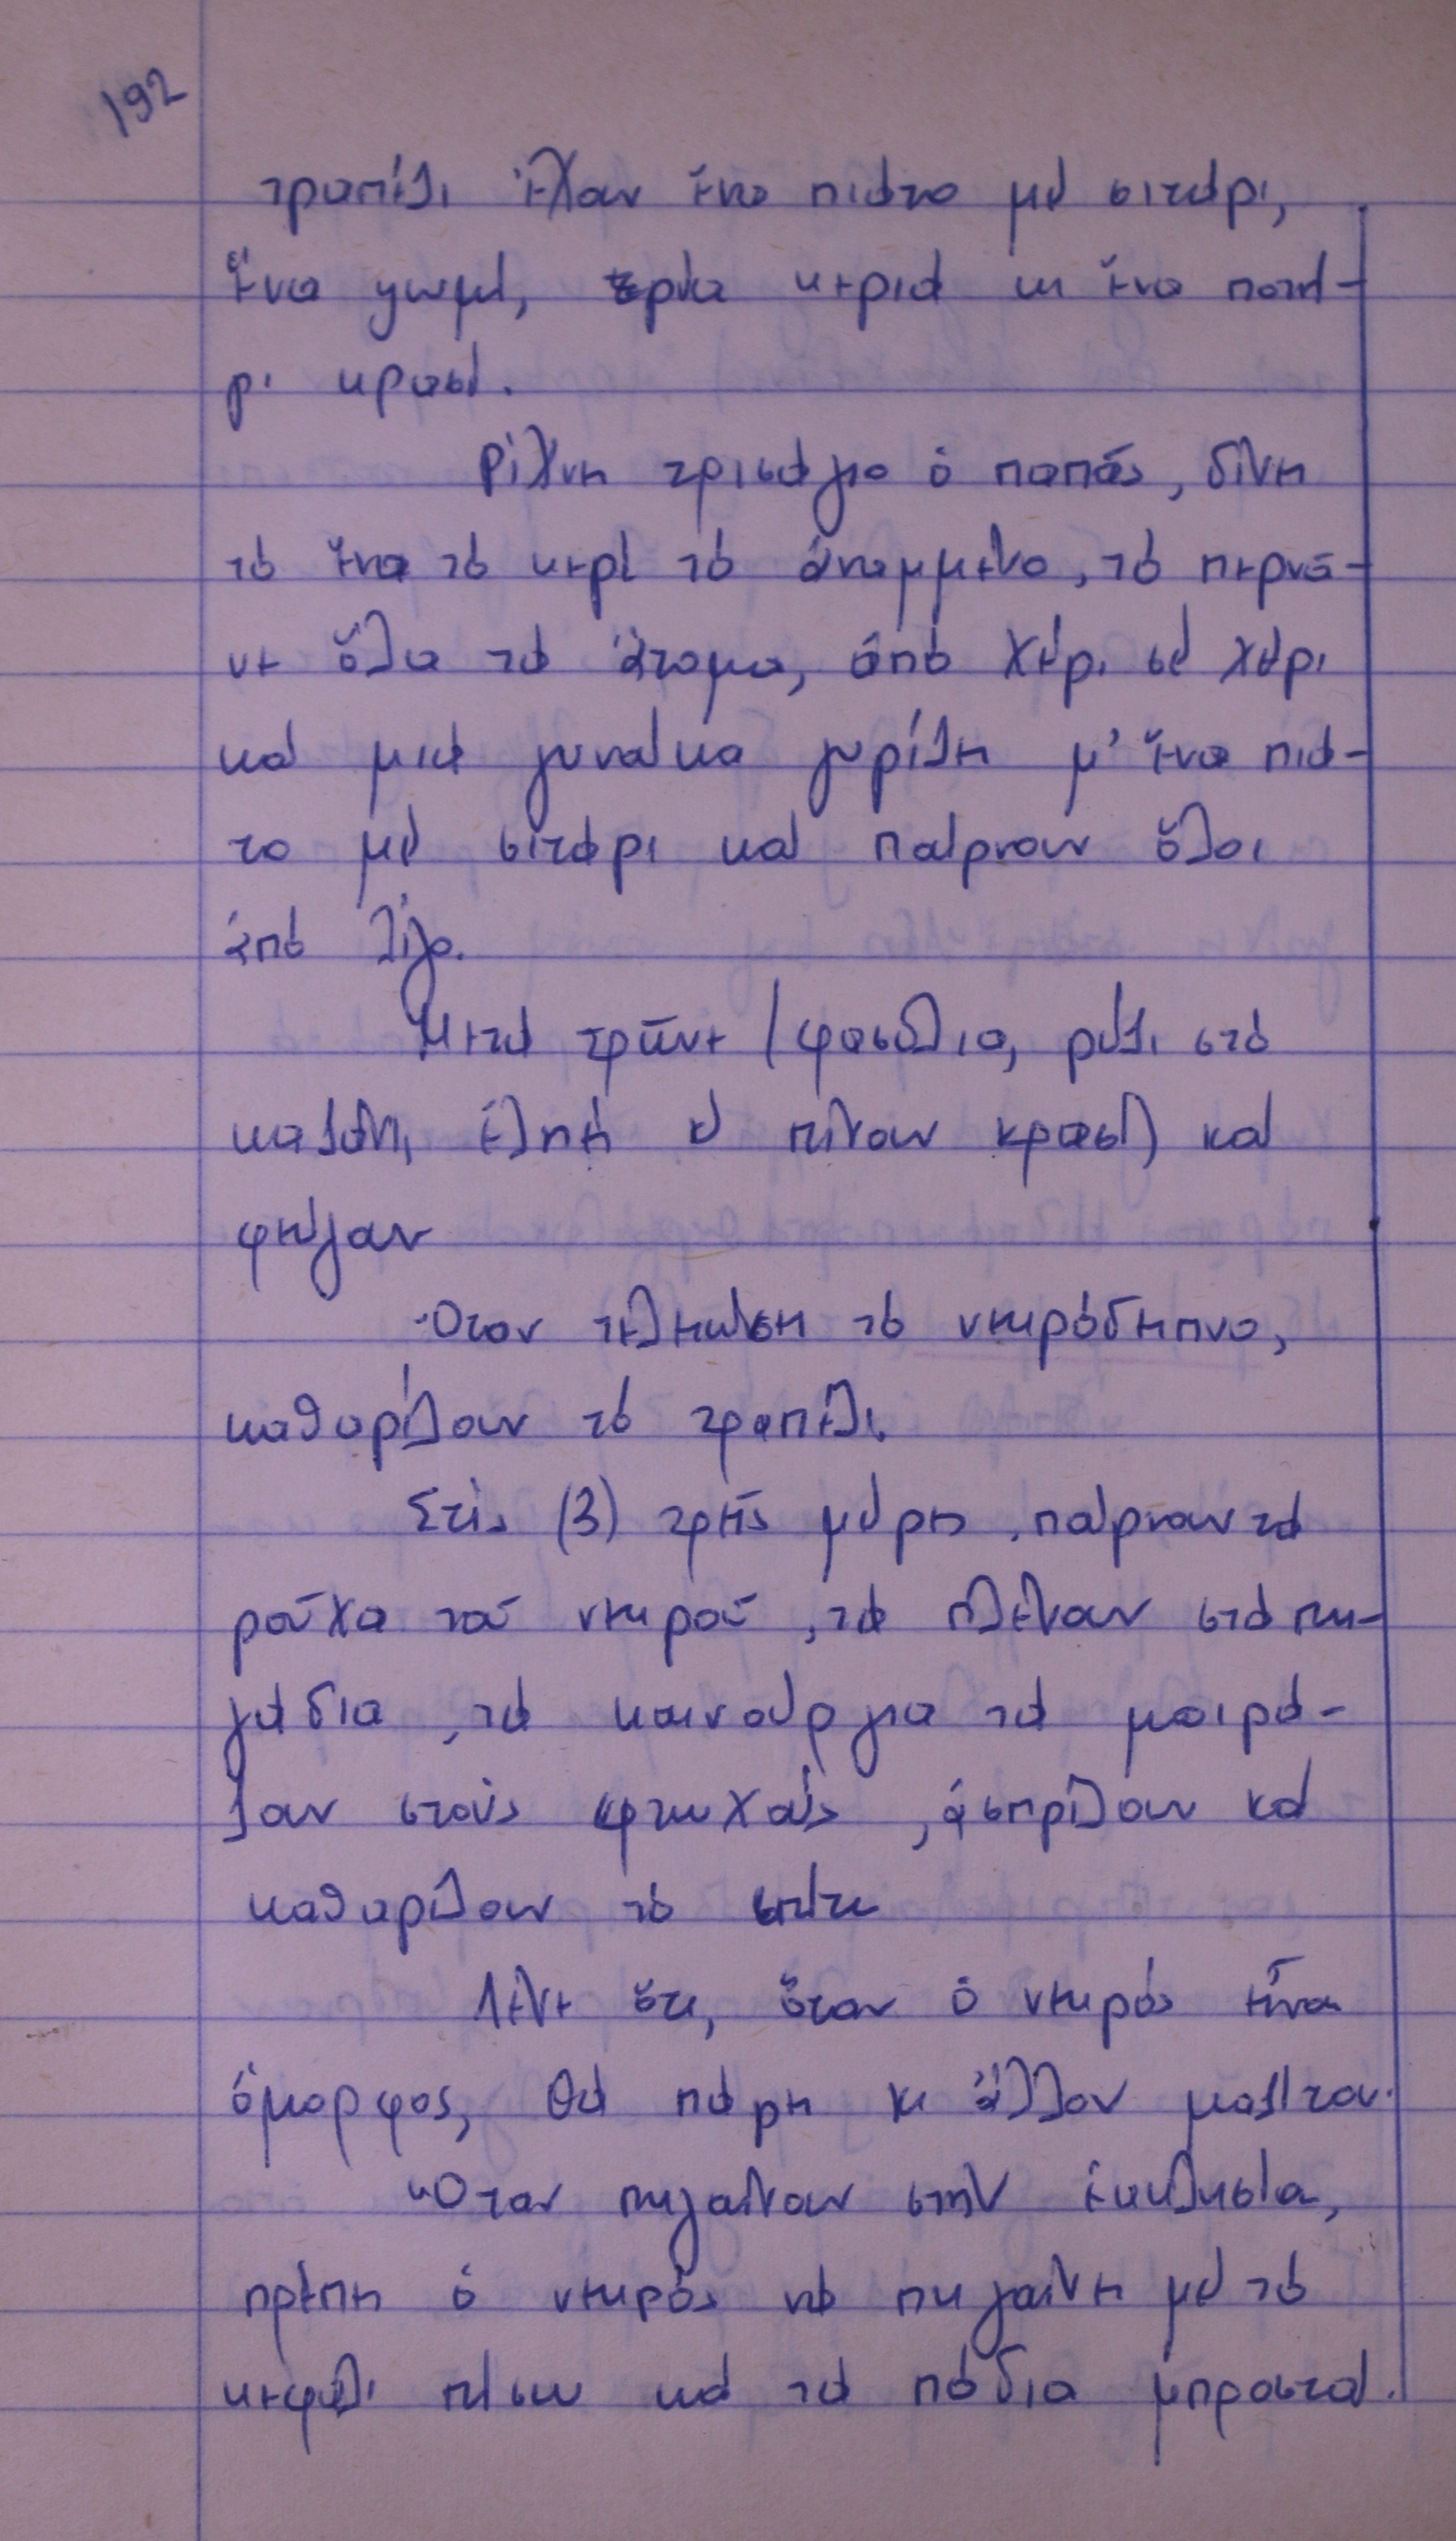 192
τραπέζι ἔχουν ἕνα πιάτο μέ σιτάρι,
ἕνα ψωμί, τρία κεριά κι ἕνα ποτή-
ρι κρασί.
Ρίχνει τρισάγιο ὁ παπάς, δίνει
τό ἕνα τό κερί τό ἀναμμένο, τό περνᾶ-
νε ὅλα τά ἄτομα, ἀπό χέρι σέ χέρι
καί μιά γυναίκα γυρίζει μ' ἕνα πιά-
το μέ σιτάρι καί παίρνουν ὅλοι
ἀπό λίγο.
Μετά τρῶνε (φασόλια, ρύζι στό
καζάνι, ἐλιές καί πίνουν κρασί) καί
φεύγουν
Ὅταν τελειώσει τό νεκρόδειπνο,
καθαρίζουν τό τραπέζι.
Στίς (3) τρεῖς μέρες, παίρνουν τά
ροῦχα τοῦ νεκροῦ, τά πλένουν στά πη-
γάδια, τά καινούργια τά μοιρά-
ζουν στούς φτωχούς, ἀσπρίζουν καί
καθαρίζουν τό σπίτι
Λένε ὅτι, ὅταν ὁ νεκρός εἶναι
ὄμορφος, θά πάρει κι ἄλλον μαζί του.
Ὅταν πηγαίνουν στήν ἐκκλησία,
πρέπει ὁ νεκρός νά πηγαίνει μέ τό
κεφάλι πίσω καί τά πόδια μπροστά.